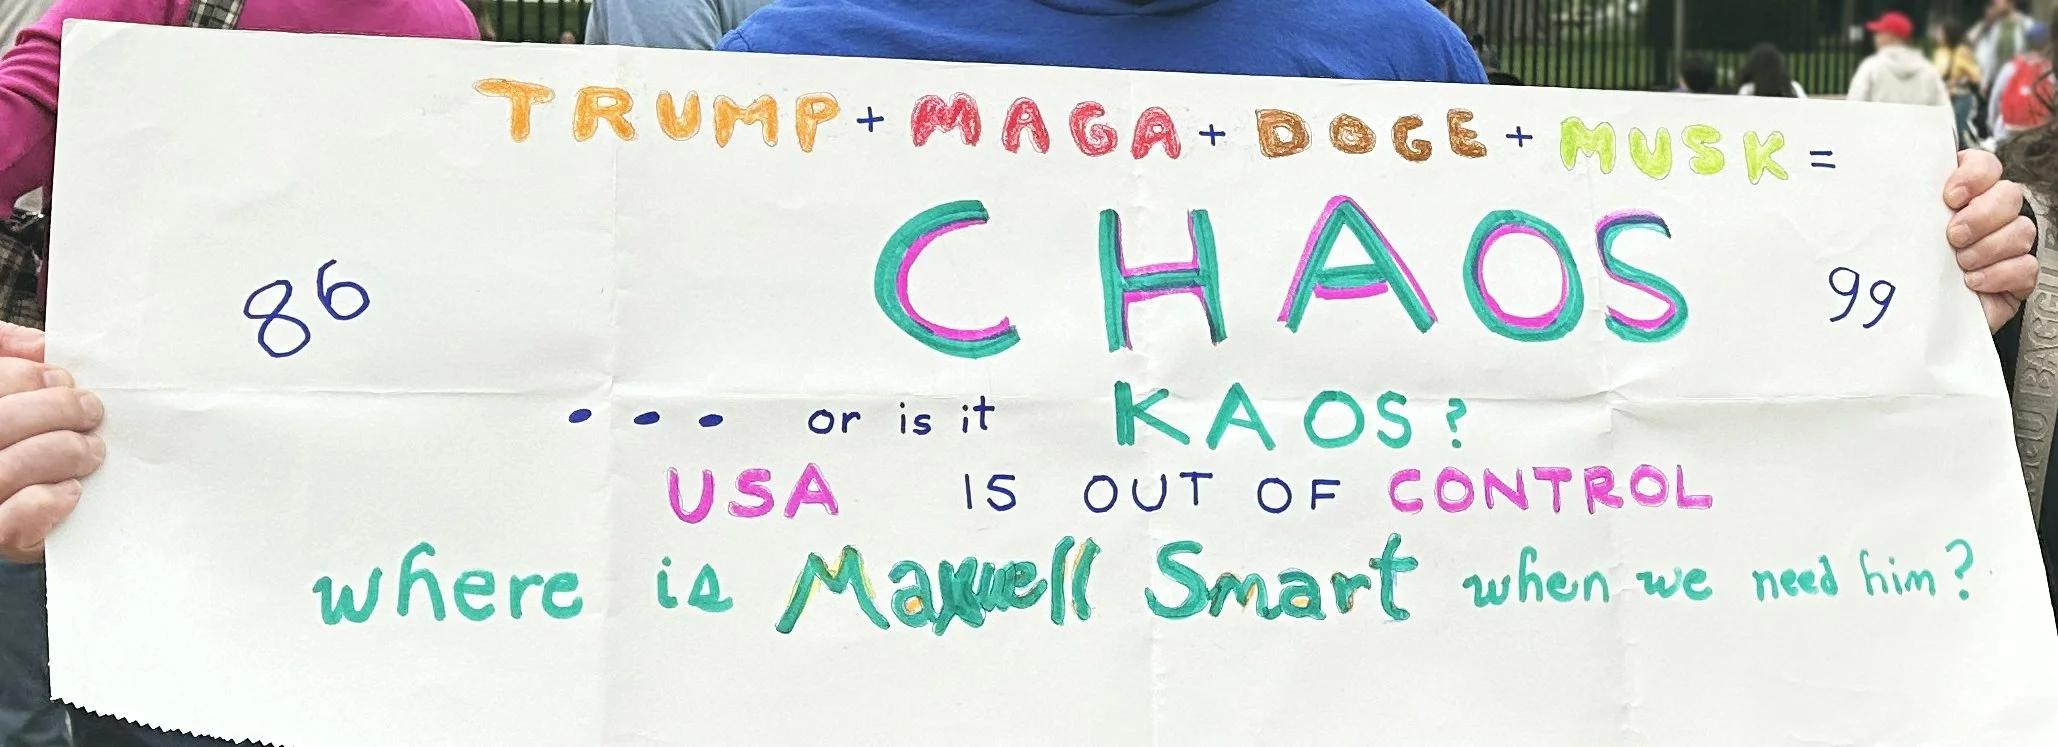 TRUMP + MAGA + DOGE + MUSK =
CHAOS
86
99
• • • or is it KAOS?
USA IS OUT OF CONTROL
where is Maxwell Smart when we need him?